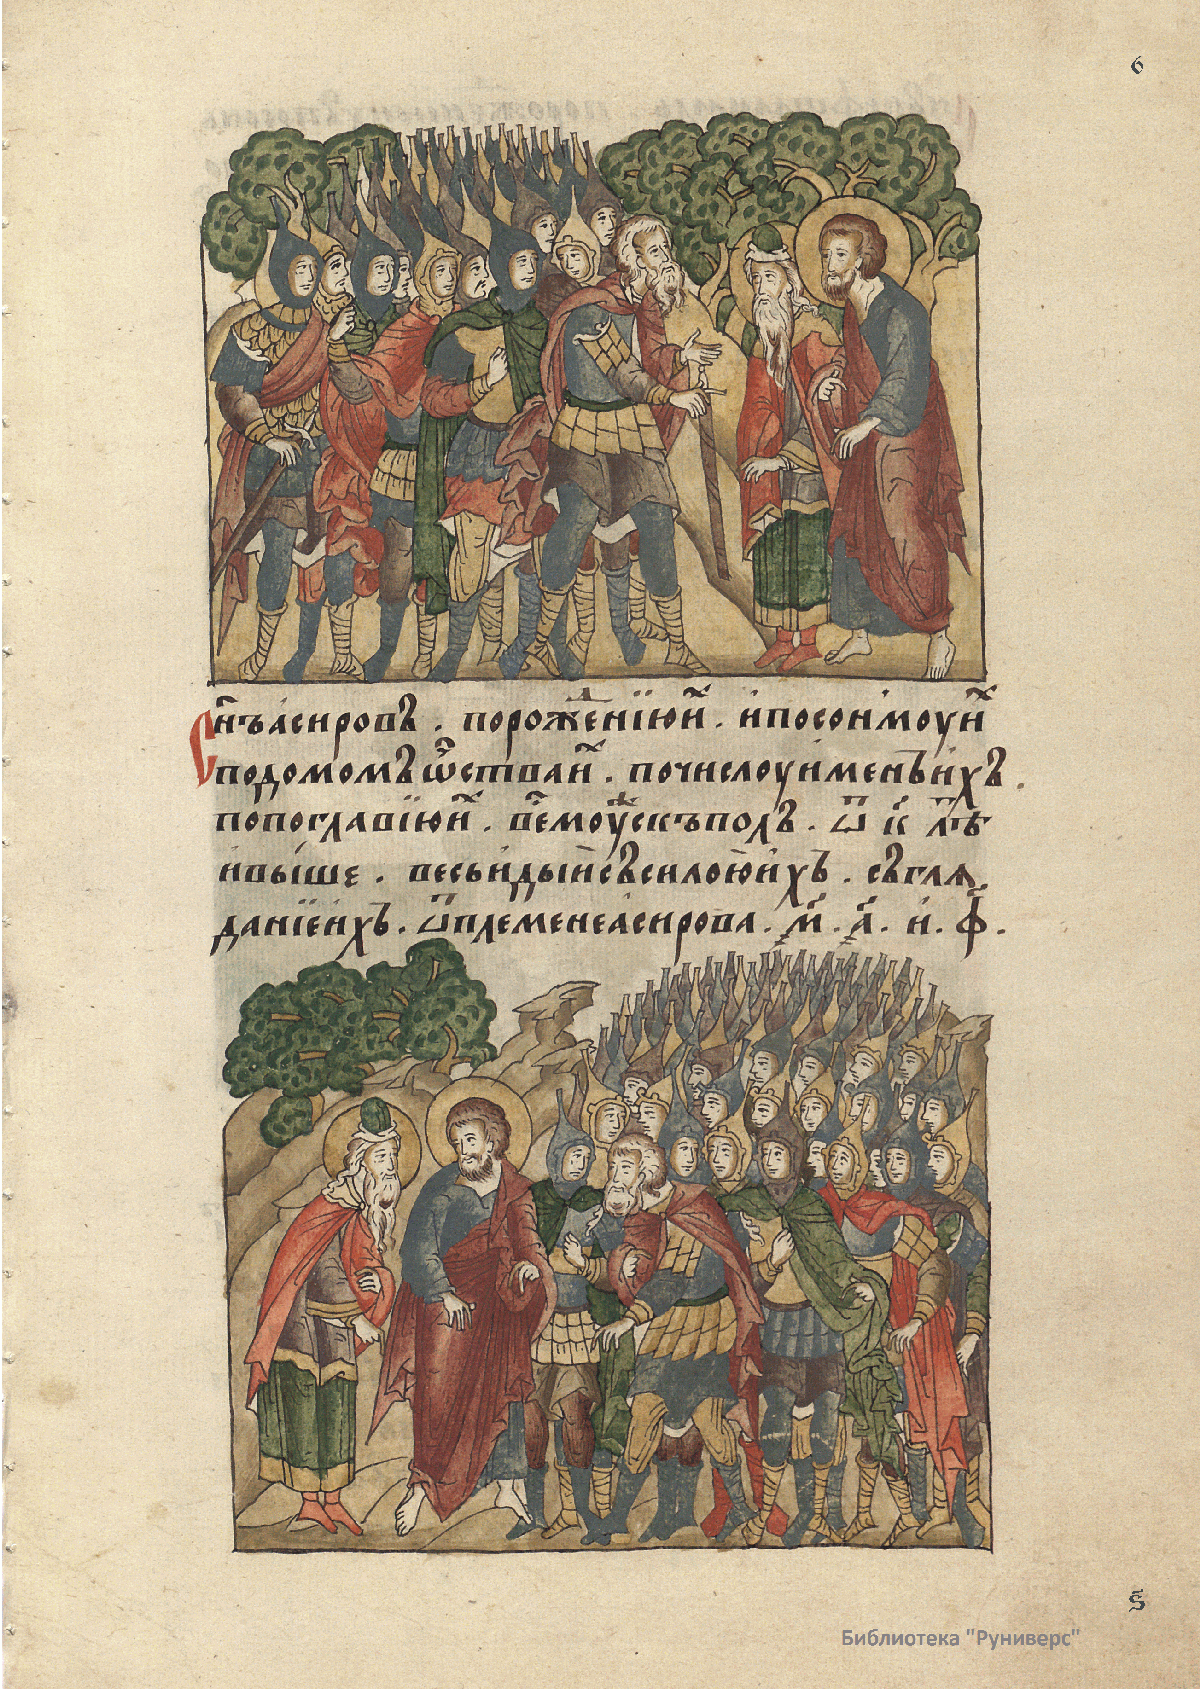 6
Сн҃ъ асировъ . порожⷣенїю иⷯ . и по сонмоу иⷯ
по домомъ ѿⷱ҇ства иⷯ . по числоу именъ ихъ .
по поглавїю иⷯ . всѐмоуⷤскъ полъ . ѿ к҃ лѣⷮ
и выше . весь идый съ силою ихъ . съгля
данїе ихъ . ѿ племене асирова . м҃ . а҃ . и . ф҃ .
ѕ҃
Библиотека "Руниверс"